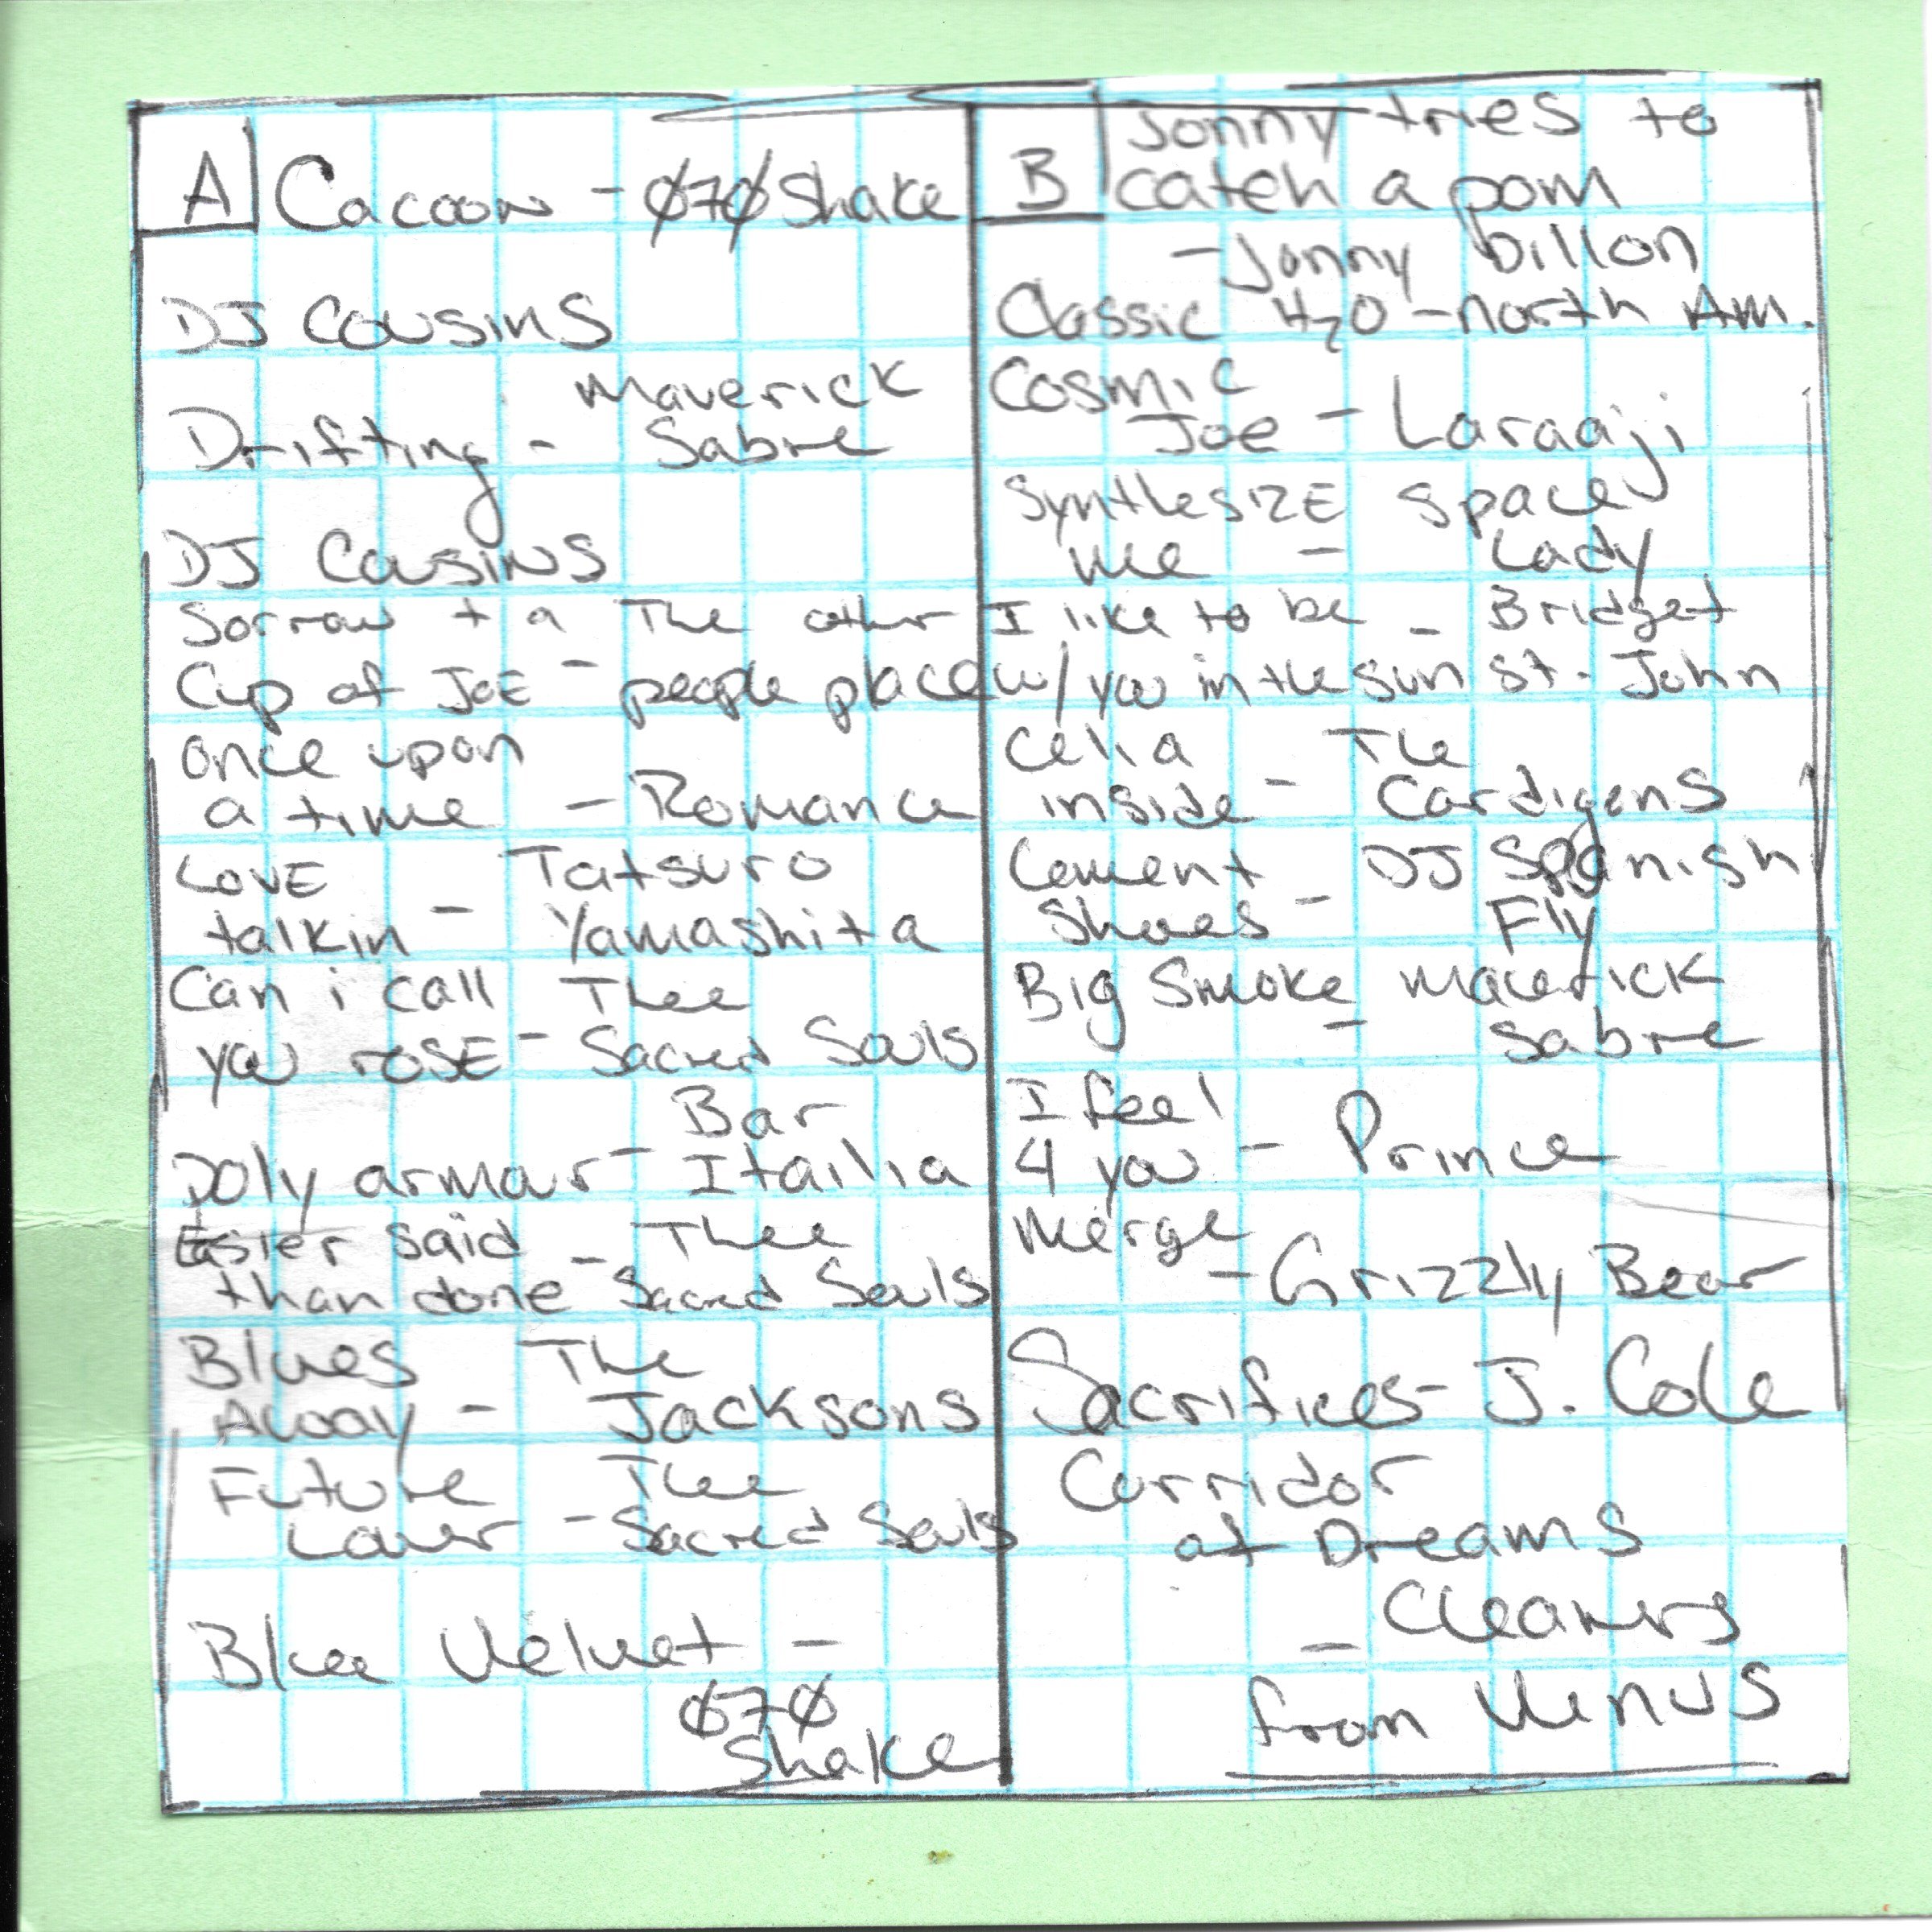 A Cacoon - 070 Shake
DJ Cousins
Maverick
Drifting - Sabre
DJ Cousins
Sorrow + a The other
Cup of JoE - people place
once upon
a time - Romance
LOVE Tatsuro
talkin - Yamashita
Can i call Thee
you rosE - Sacred Souls
Bar
poly armour - Itailia
Easier said - Thee
than done Sacred Souls
Blues The
Away - Jacksons
Future Thee
Lover - Sacred Souls
Blue Velvet -
070
Shake
B Jonny tries to
catch a pom
- Jonny Dillon
Classic H2O - North Am.
Cosmic
Joe - Laraaji
SynthesizE Space
me - Lady
I like to be - Bridget
w/ you in the sun St. John
Celia The
inside - Cardigens
Cement DJ Spanish
Shoes - Fly
Big Smoke Maverick
- Sabre
I feel
4 you - Prince
Merge
- Grizzly Bear
Sacrifices - J. Cole
Corridor
of Dreams
- Cleaners
from Venus